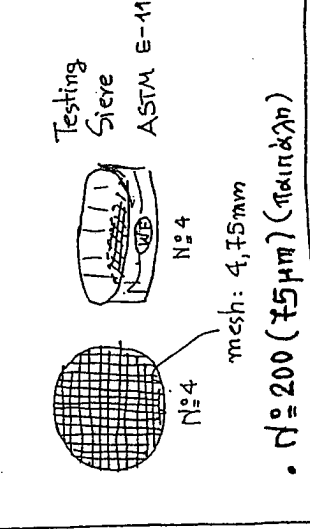 Testing
Sieve
ASTM E-11
WB
Nº4
Nº4
mesh: 4,75mm
• Nº200 (75μm) (παιπάλη)